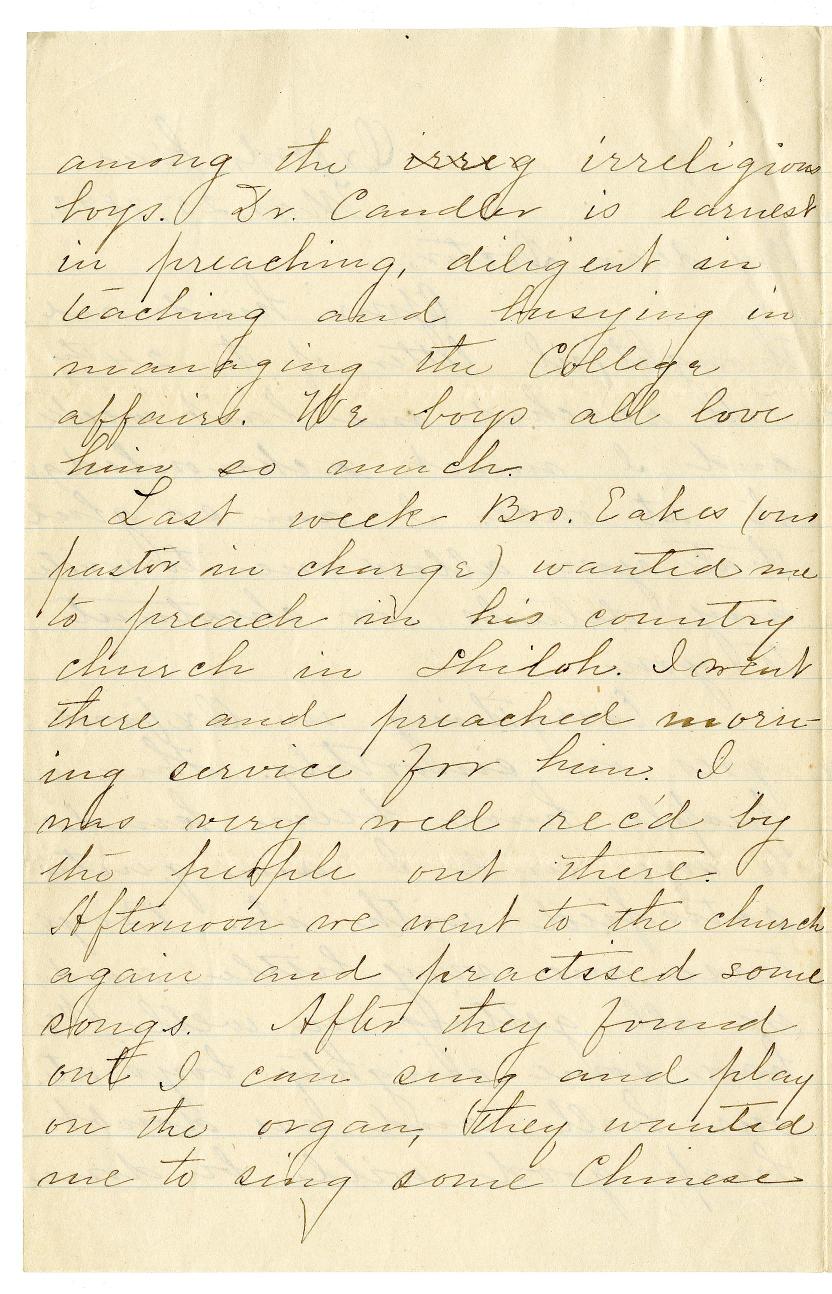 among the irreg irreligious
boys. Dr. Candler is earnest
in preaching, diligent in
teaching and busying in
managing the College
affairs. We boys all love
him so much.
Last week Bro. Eakes (our
pastor in charge) wanted me
to preach in his country
church in Shiloh. I went
there and preached morn-
ing service for him. I
was very well rec'd by
the people out there.
Afternoon we went to the church
again and practised some
songs. After they found
out I can sing and play
on the organ, they wanted
me to sing some Chinese